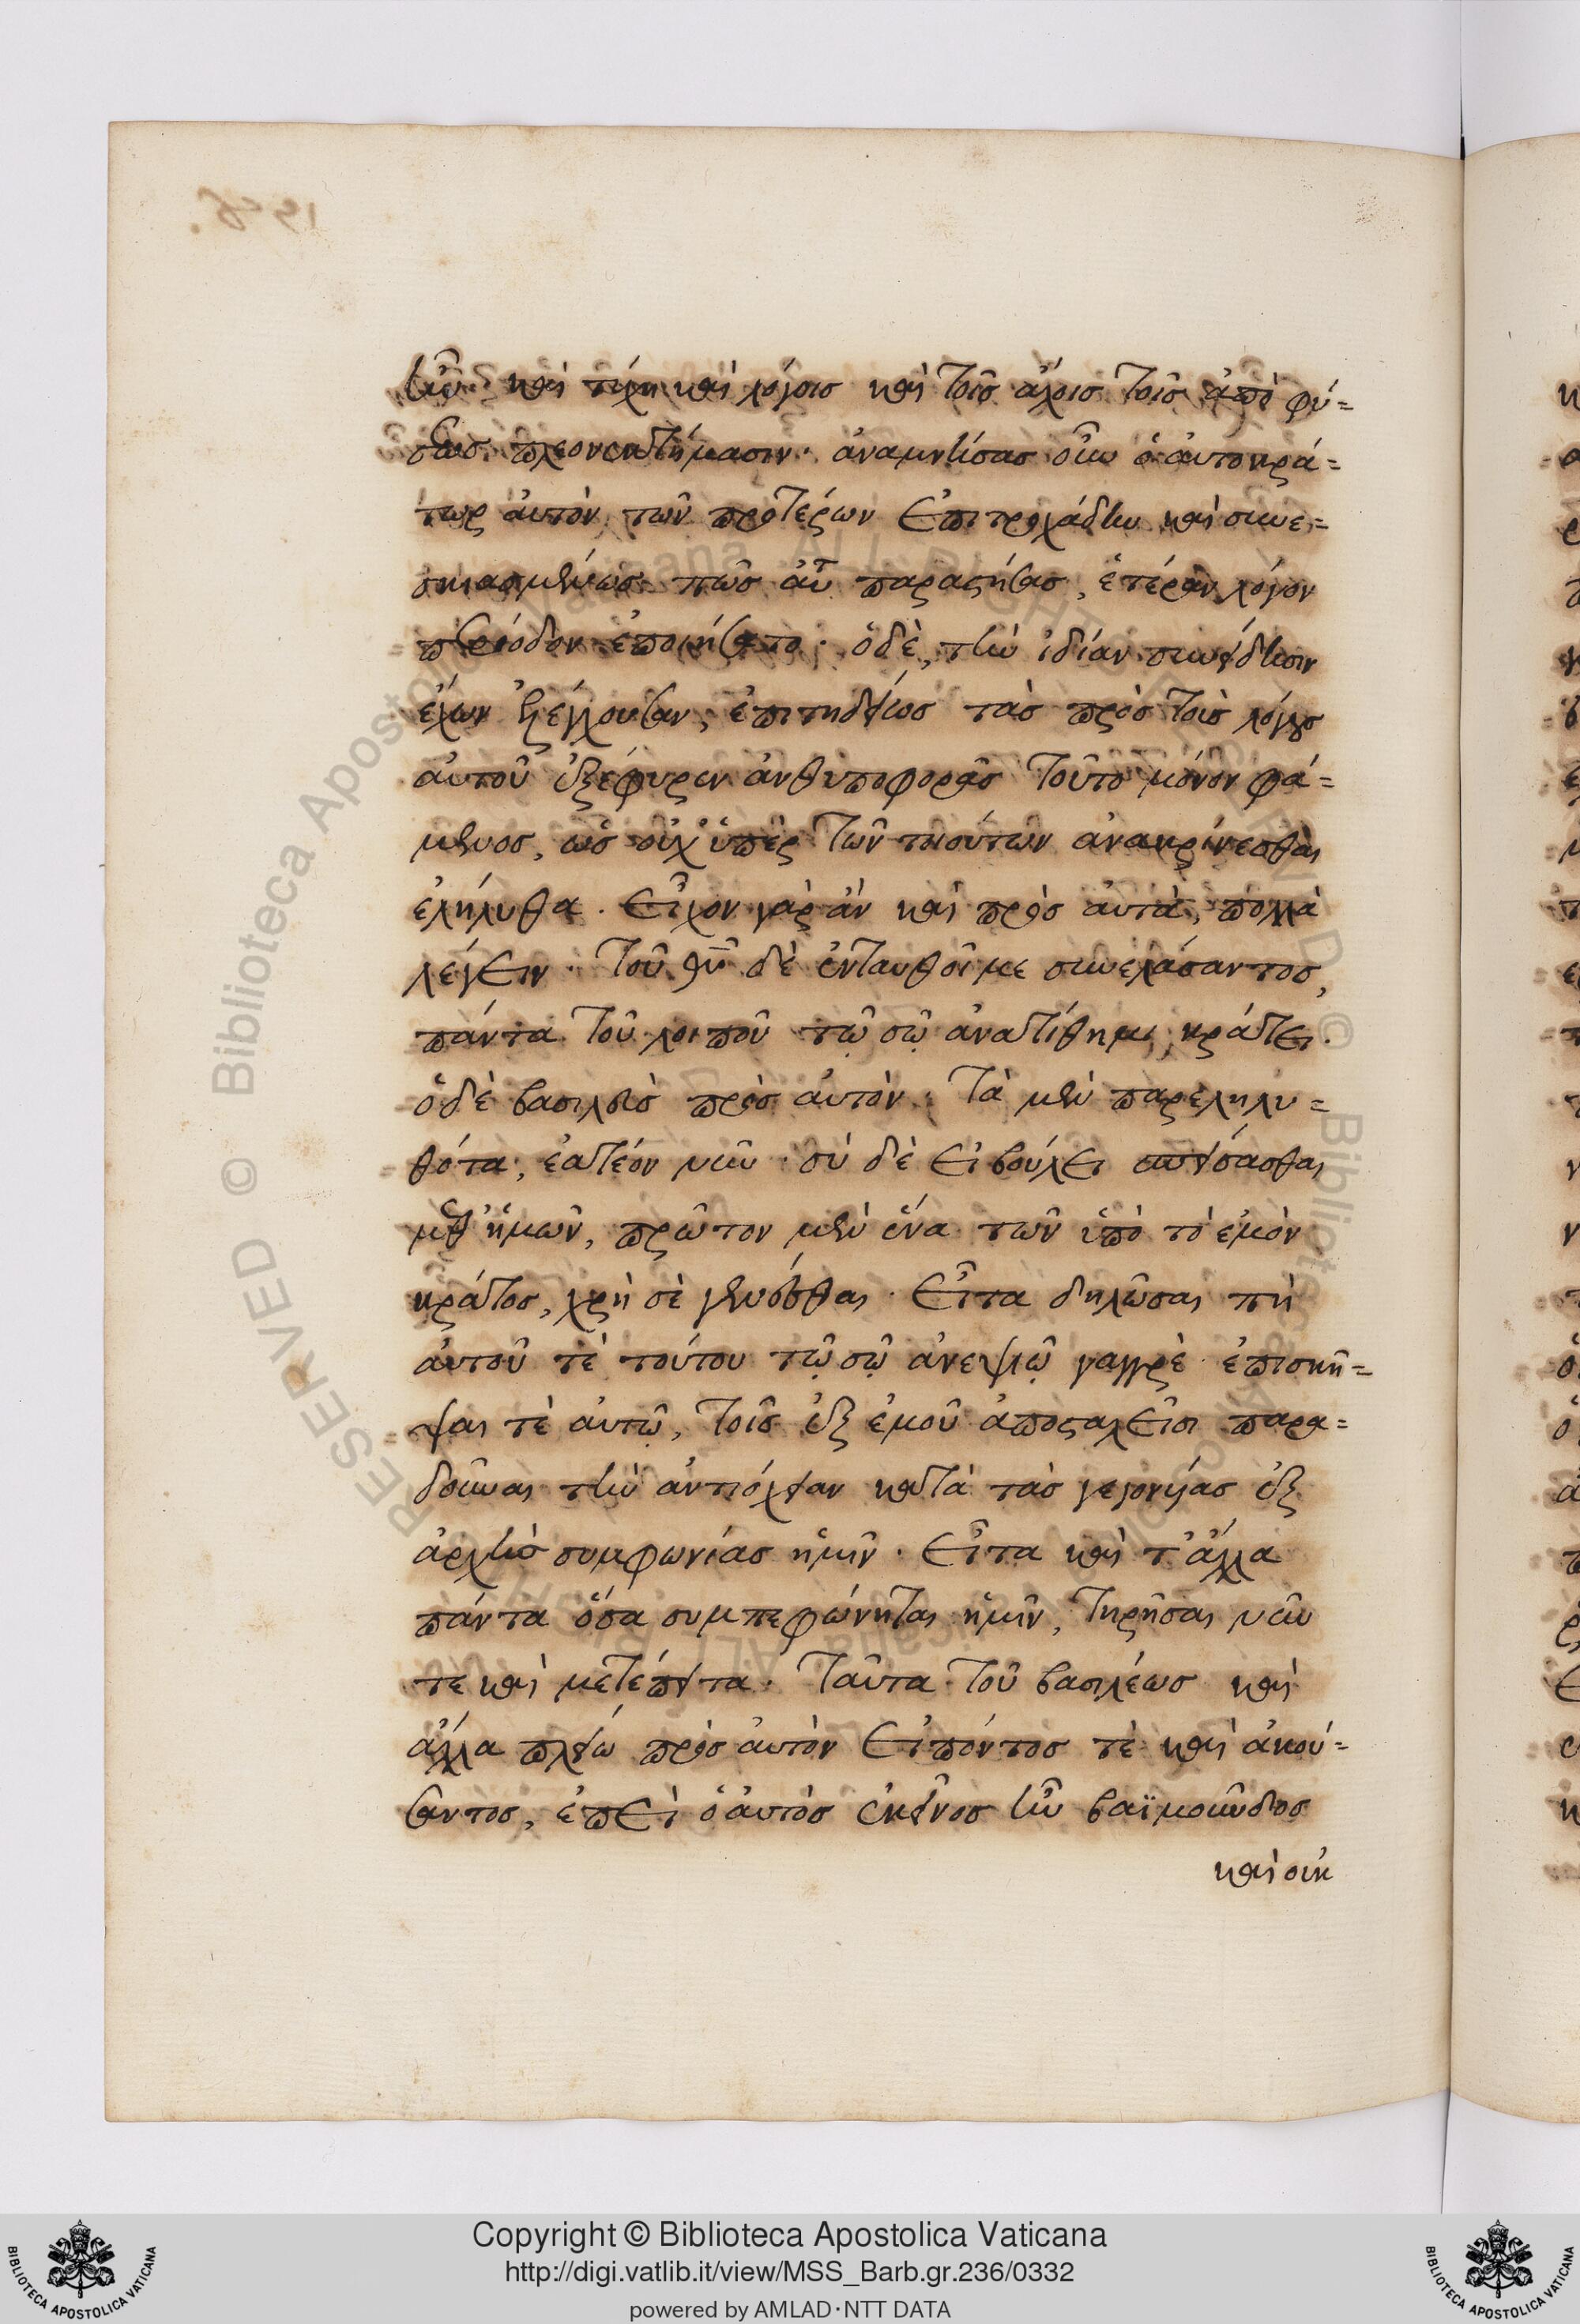 ἦν καὶ τύχη καὶ λόγοις καὶ τοῖς ἄλλοις τοῖς ἀπὸ φύ=
σεως πλεονεκτήμασιν· ἀναμνήσας οὖν ὁ αὐτοκρά=
τωρ αὐτὸν τῶν προτέρων ἐπιτροχάδην καὶ συνε=
σκιασμένως πῶς αὖ παραστήσας, ἑτέραν λόγον
περίοδον ἐποιήσατο· ὁ δὲ, τὴν ἰδίαν συνείδησιν
ἔχων ἐξελέγχουσαν, ἐπιτηδείως τὰς πρὸς τοὺς λόγους
αὐτοῦ ἐξέφυγεν ἀνθυποφορὰς τοῦτο μόνον φά=
μενος, ὡς οὐχ ὑπὲρ τῶν τοιούτων ἀνακρίνεσθαι
ἐλήλυθα. Εἶχον γὰρ ἂν καὶ πρὸς αὐτὰ, πολλὰ
λέγειν. τοῦ θῦ δὲ ἐνταυθοῖ με συνελάσαντος,
πάντα τοῦ λοιποῦ τῷ σῷ ἀνατίθημι κράτει.
ὁ δὲ βασιλεὺς πρὸς αὐτὸν· Τὰ μὲν παρεληλυ=
θότα, ἐατέον νῦν· σὺ δὲ εἰ βούλει σπείσασθαι
μεθ' ἡμῶν, πρῶτον μὲν ἕνα τῶν ὑπὸ τὸ ἐμὸν
κράτος, χρὴ σὲ γενέσθαι. Εἶτα δηλῶσαι πὴ
αὐτοῦ τὲ τούτου τῷ σῷ ἀνεψιῷ γαγγρὲ ἐπισκῆ=
ψαι τὲ αὐτῷ, τοῖς ἐξ ἐμοῦ ἀποσταλεῖσι παρα=
δοῦναι τὴν ἀντιόχειαν κατὰ τὰς γεγονυίας ἐξ
ἀρχῆς συμφωνίας ἡμῖν. Εἶτα καὶ τἄλλα
πάντα ὅσα συμπεφώνηται ἡμῖν, τηρῆσαι νῦν
τε καὶ μετέπειτα. Ταῦτα τοῦ βασιλέως καὶ
ἄλλα πλείω πρὸς αὐτὸν εἰπόντος τὲ καὶ ἀκού=
σαντος, ἐπεὶ ὁ αὐτὸς ἐκεῖνος ἦν βαϊμοῦντος
καὶ οὐκ
Copyright © Biblioteca Apostolica Vaticana
http://digi.vatlib.it/view/MSS_Barb.gr.236/0332
powered by AMLAD·NTT DATA